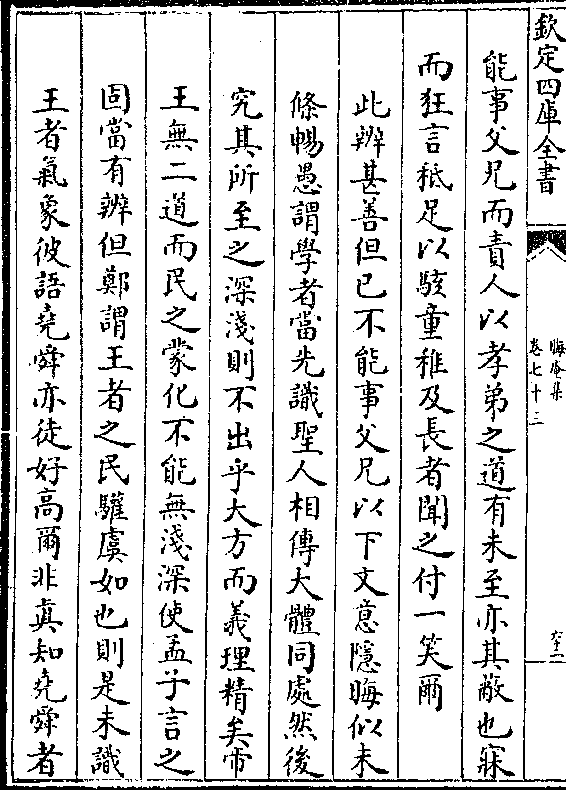 欽定四庫全書
晦庵集
卷七十三
能事父兄而責人以孝弟之道有未至亦其敝也寐
而狂言秪足以駭童稚及長者聞之付一笑爾
此辨甚善但已不能事父兄以下文意隱晦似未
條暢愚謂學者當先識聖人相傳大體同處然後
究其所至之深淺則不出乎大方而義理精矣帝
王無二道而民之蒙化不能無淺深使孟子言之
固當有辨但鄭謂王者之民驩虞如也則是未識
王者氣象彼語堯舜亦徒好高爾非真知堯舜者